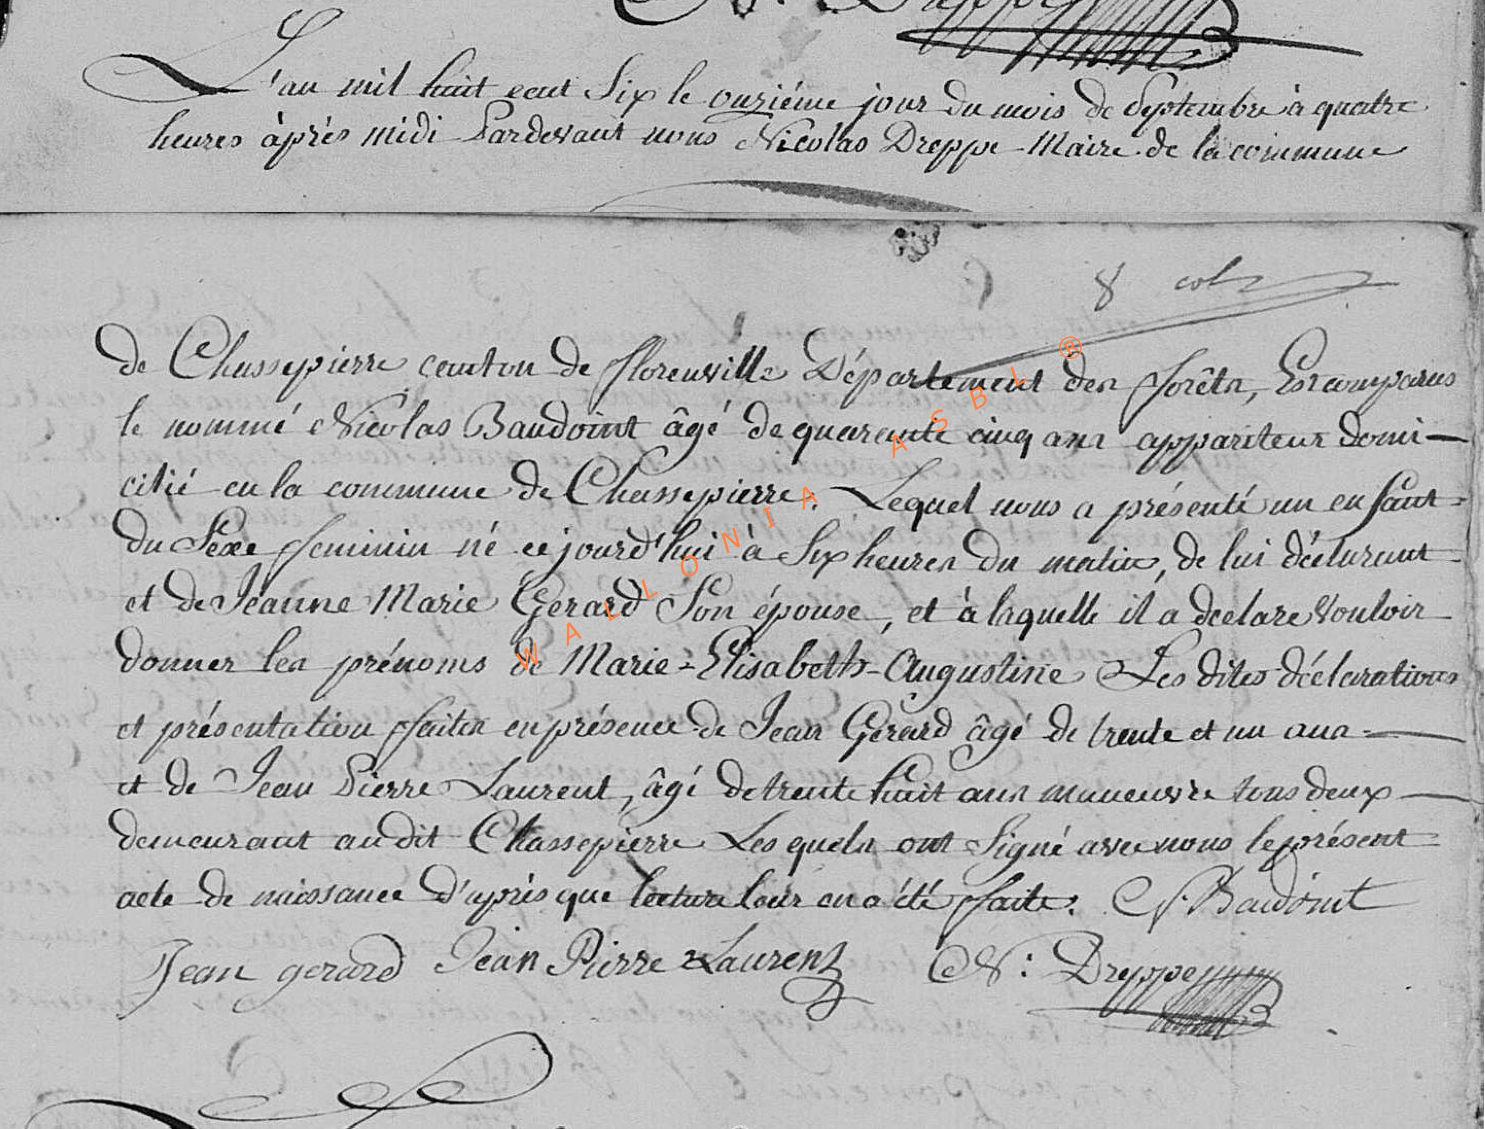 N. Dreppe
L'an mil huit cent Six le onziéme jour du mois de Septembre à quatre
heures âprés midi Pardevant nous Nicolas Dreppe Maire de la commune
8
de Chassepierre canton de florenville Département des forêts, Est comparus
le nommé Nicolas Baudoint âgé de quarente cinq ans appariteur domi-
cilié en la commune de Chassepierre. Lequel nous a présenté un enfant
du Sexe feminin né ce jourd'hui à Six heures du matin, de lui déclarant
et de Jeanne Marie Gerard Son épouse, et à laquelle il a declare vouloir
donner les prénoms de Marie-Elisabeth-Augustine Les dites déclarations
et présentation faites en présence de Jean Gerard âgé de trente et un ans
et de Jean Pierre Laurent, âgé de trente huit ans maneuvre tous deux
demeurant au dit Chassepierre Les quels ont Signé avec nous le présent
acte de naissance d'après que lecture leur en a été faite. N. Baudoint
Jean gerard Jean Pierre Laurent N: Dreppe
WALLONIA ASBL ®